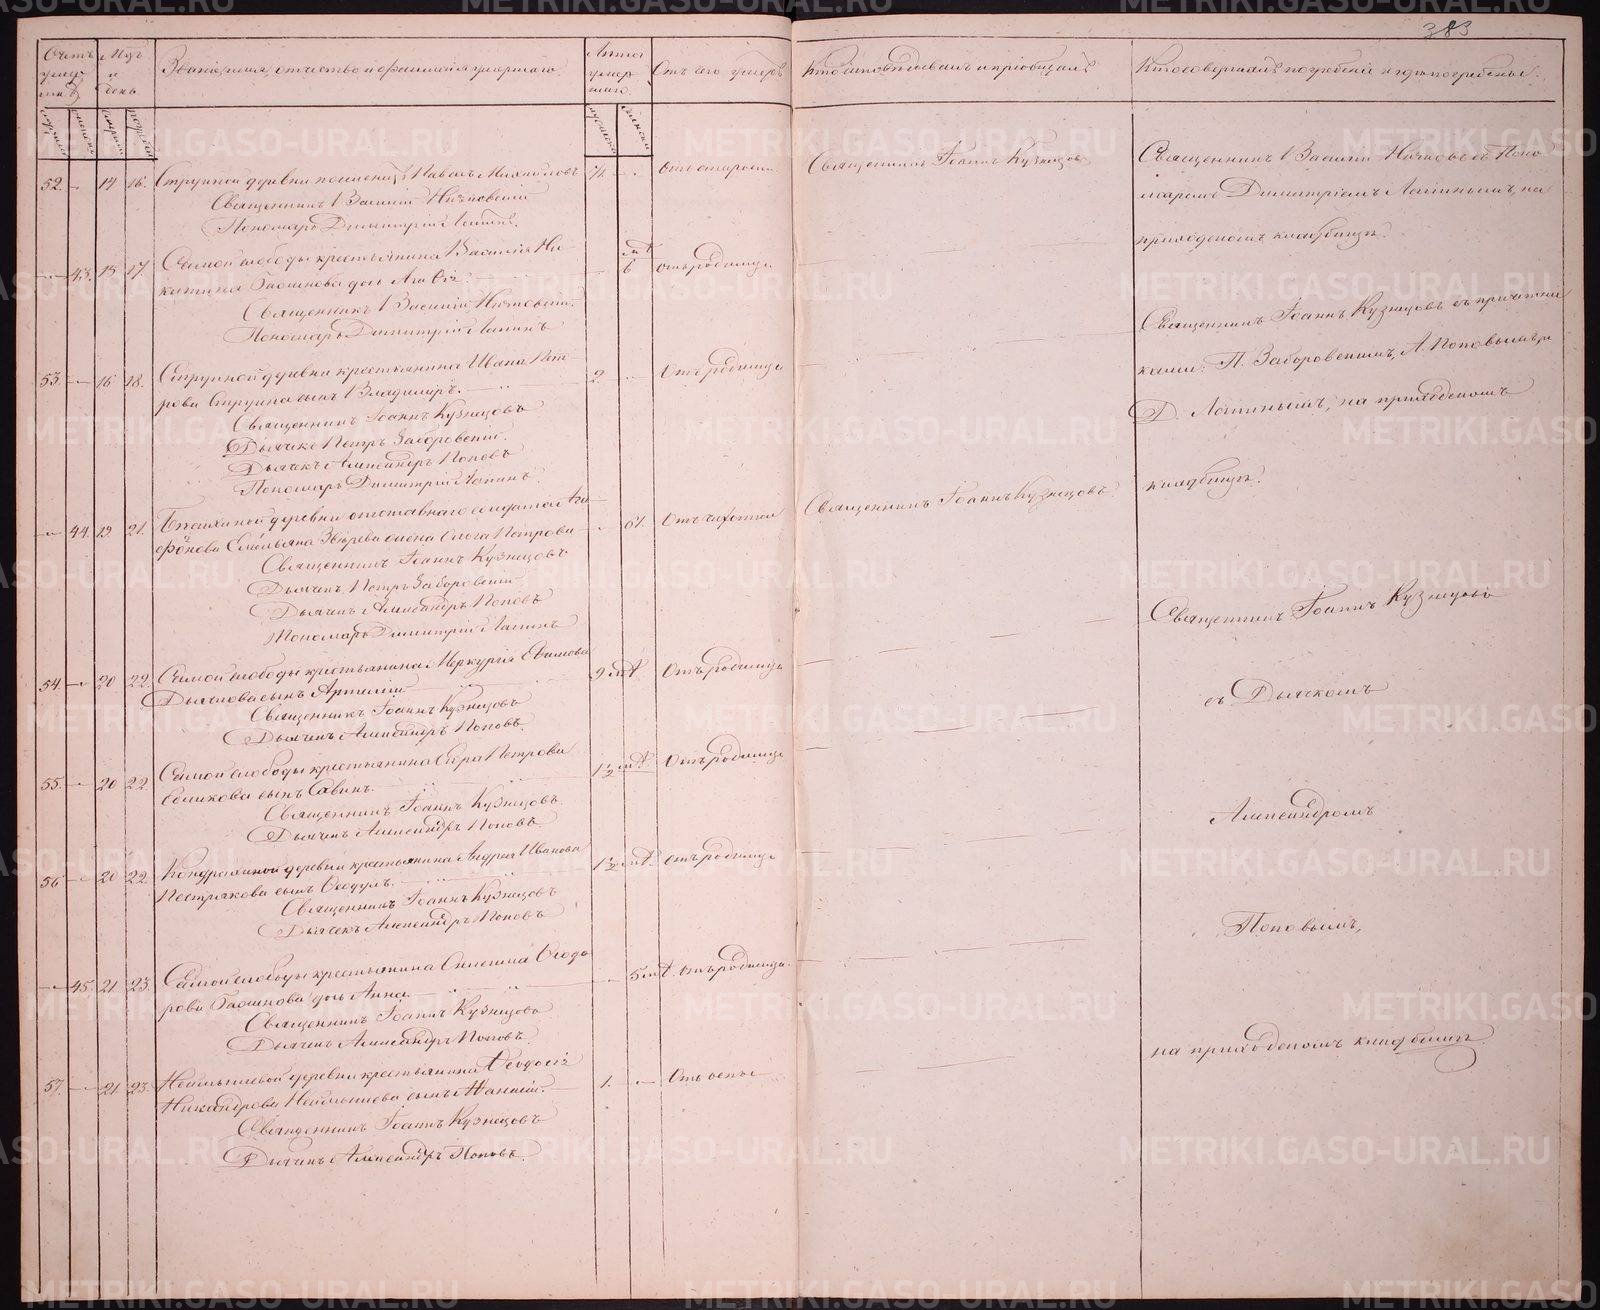 383
Счетъ умершихъ
Мѣс. и день
Званіе, имя, отчество и фамилія умершаго
Лѣта умершаго
Отъ чего умеръ
Кто исповѣдывалъ и пріобщалъ
Кто совершалъ погребеніе и гдѣ погребены.
52. 14 16. Струиной деревни поселенецъ Павелъ Михайловъ 71 отъ старости Священникъ Іоаннъ Кузнецовъ
Священникъ Василій
Пономарь Димитрій Лапинъ.
Священникъ Василій съ Пономаремъ Димитріемъ Лапинымъ, на
приходскомъ кладбищѣ.
43. 15 17. Самой слободы крестьянина Василія Никитина дочь 6 мѣ отъ родимца
Священникъ Василій
Пономарь Димитрій Лапинъ
53. 16 18. Струиной деревни крестьянина Ивана Петрова Струина сынъ Владиміръ. 2 Отъ родимца
Священникъ Іоаннъ Кузнецовъ
Дьячекъ Петръ Заборовскій.
Дьячекъ Александръ Поповъ
Пономарь Димитрій Лапинъ.
Священникъ Іоаннъ Кузнецовъ съ причетниками: П. Заборовскимъ, А. Поповымъ и
Д. Лапинымъ, на приходскомъ
кладбищѣ.
44. 19 21. деревни отставнаго солдата Агафонова Емельяна Звѣрева жена Ольга Петрова 61. Отъ чахотки Священникъ Іоаннъ Кузнецовъ
Священникъ Іоаннъ Кузнецовъ
Дьячекъ Петръ Заборовскій
Дьячекъ Александръ Поповъ
Пономарь Димитрій Лапинъ
54. 20 22. Самой слободы крестьянина Меркурія Ефимова Дьячкова сынъ Артемій 9 мѣ. Отъ родимца
Священникъ Іоаннъ Кузнецовъ
Дьячекъ Александръ Поповъ.
Священникъ Іоаннъ Кузнецовъ
съ Дьячкомъ
Александромъ
Поповымъ,
на приходскомъ кладбищѣ.
55. 20 22. Самой слободы крестьянина Петрова сынъ Савинъ. 1½ мѣ. Отъ родимца
Священникъ Іоаннъ Кузнецовъ.
Дьячекъ Александръ Поповъ.
56 20 22. Кондрашиной деревни крестьянина Андрея Иванова Пестрякова сынъ Ѳеодулъ. 1½ мѣ. отъ родимца
Священникъ Іоаннъ Кузнецовъ
Дьячекъ Александръ Поповъ
45. 21 23. Самой слободы крестьянина Ѳеодорова дочь Анна. 5 мѣ. отъ родимца.
Священникъ Іоаннъ Кузнецовъ
Дьячекъ Александръ Поповъ.
57. 21 23. деревни крестьянина Ѳеодосія Никандрова сынъ 1. Отъ оспы
Священникъ Іоаннъ Кузнецовъ
Дьячекъ Александръ Поповъ.
METRIKI.GASO-URAL.RU